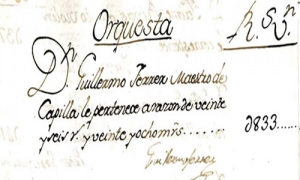 Orquesta
R.s V.n
D.n Guillermo Ferrer Maestro de
Capilla le pertenece a razon de veinte
y seis r.s y veinte y ocho mrs....... 0833......
Guillermo Ferrer